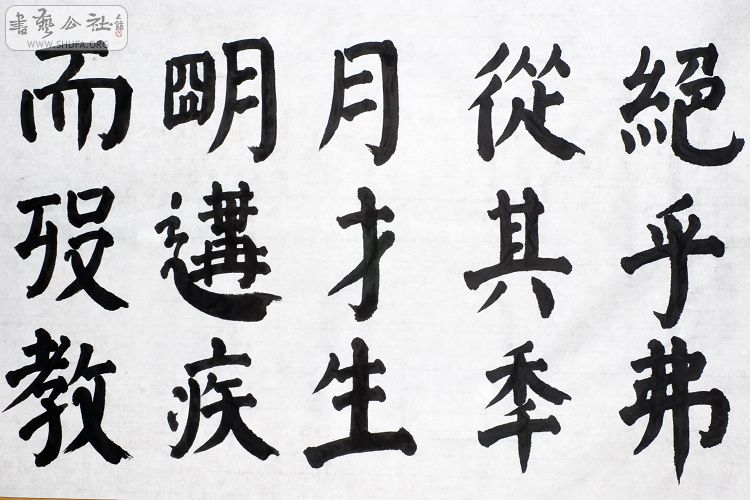 書藝公社
WWW.SHUFA.ORG
絕乎弗
從其秊
月才生
朙遘疾
而歿教